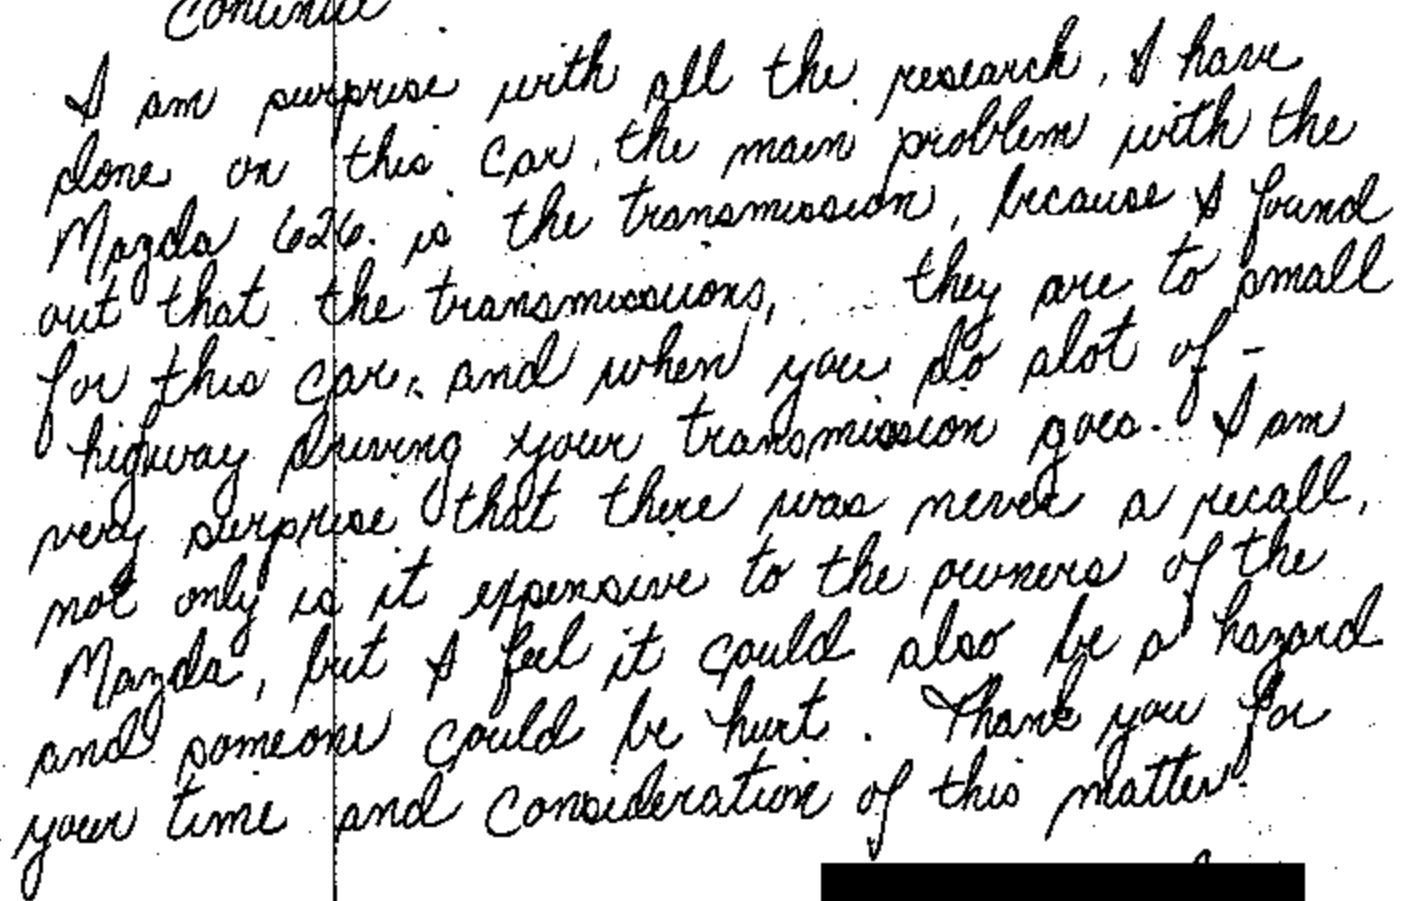 Continue
I am surprise with all the research, I have
done on this car, the main problem with the
Mazda 626. is the transmission, because I found
out that the transmissions, they are to small
for this car, and when you do alot of -
highway driving your transmission goes. I am
very surprise that there was never a recall,
not only is it expensive to the owners of the
Mazda, but I feel it could also be a hazard
and someone could be hurt. Thank you for
your time and consideration of this matter.